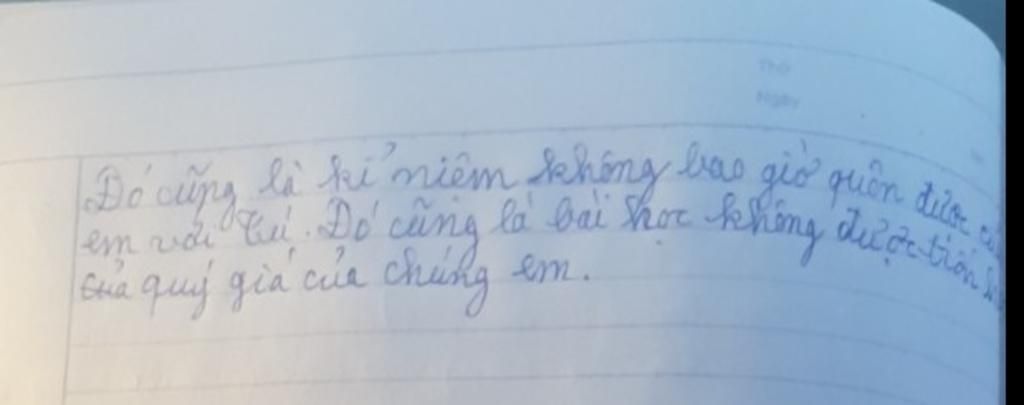 Thứ
Ngày
Đó cũng là kỉ niệm không bao giờ quên được
em với Tú. Đó cũng là bài học không được trốn
của quý giá của chúng em.